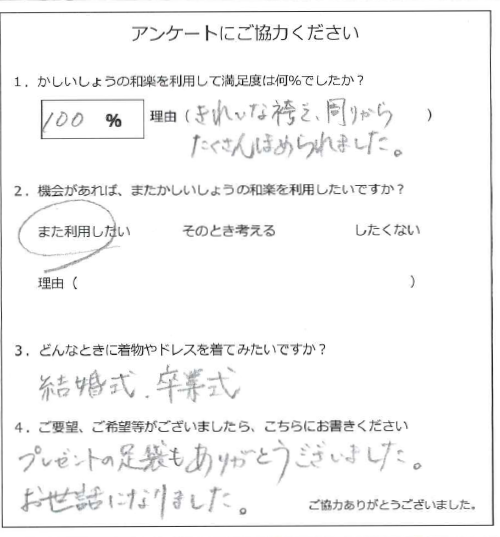 アンケートにご協力ください
1．かしいしょうの和楽を利用して満足度は何%でしたか？
100 % 理由（きれいな袴で、周りから）
たくさんほめられました。
2．機会があれば、またかしいしょうの和楽を利用したいですか？
また利用したい そのとき考える したくない
理由（ ）
3．どんなときに着物やドレスを着てみたいですか？
結婚式、卒業式
4．ご要望、ご希望等がございましたら、こちらにお書きください
プレゼントの足袋もありがとうございました。
お世話になりました。
ご協力ありがとうございました。